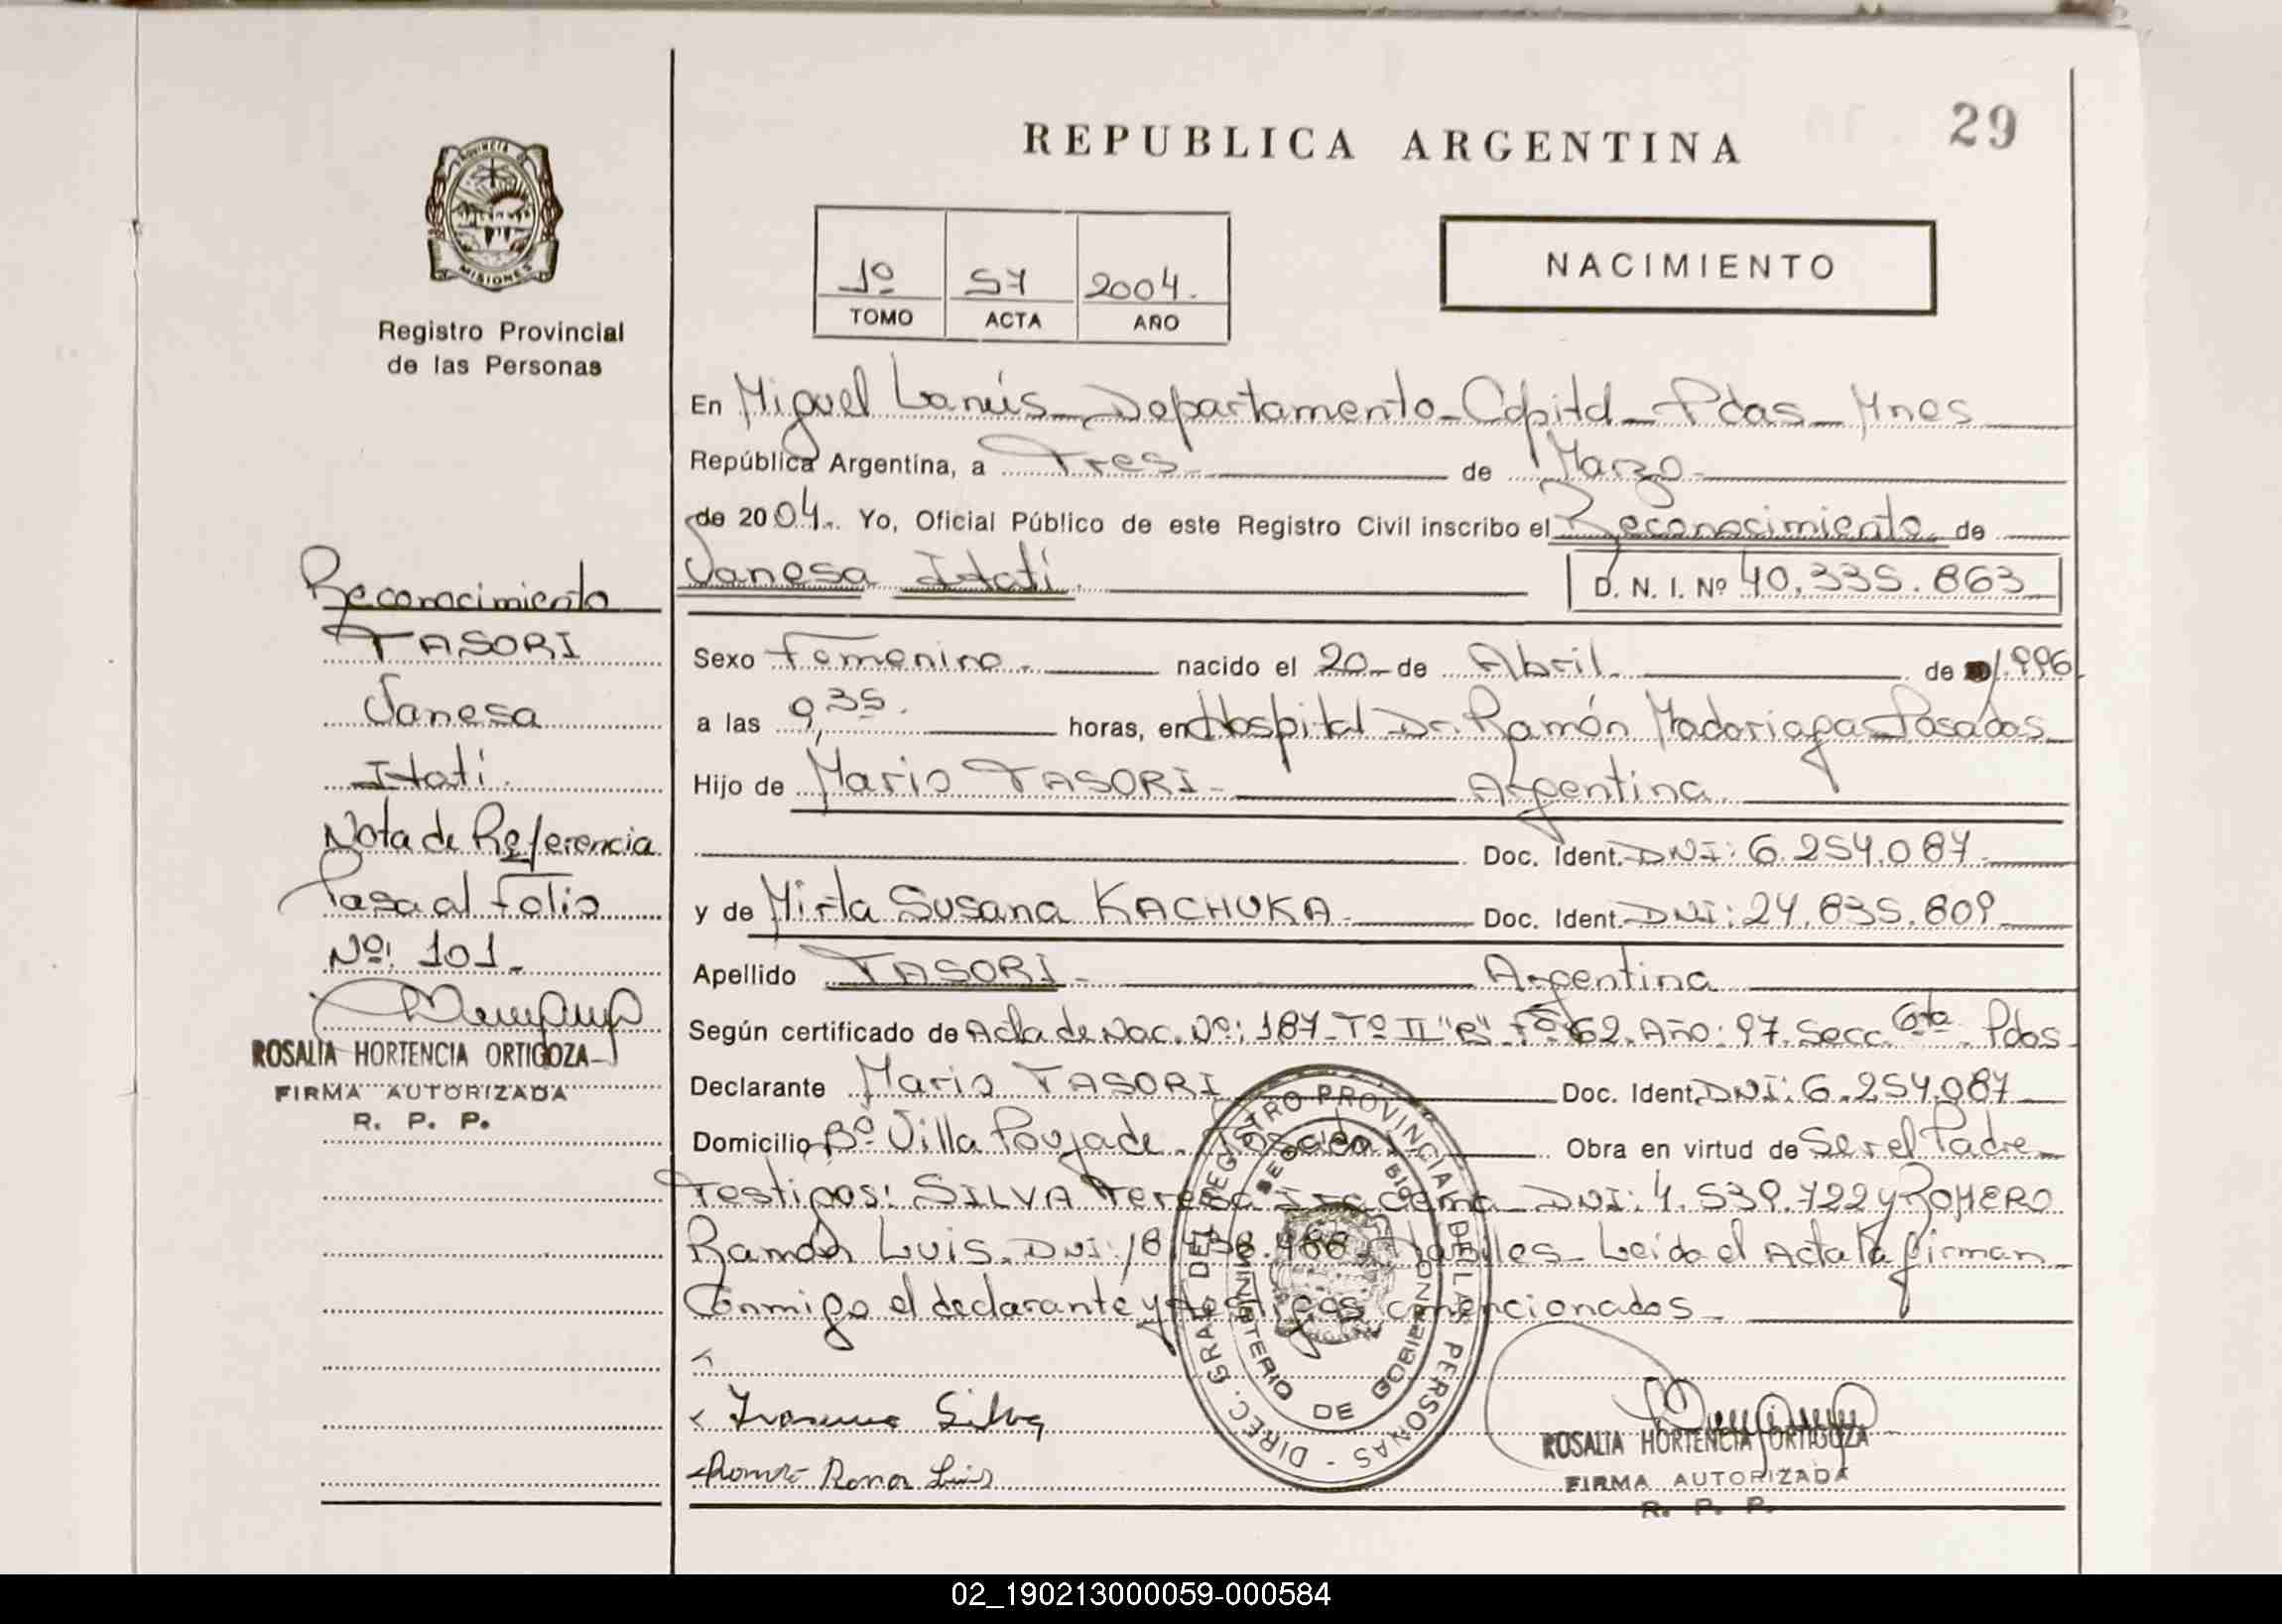 29
REPUBLICA ARGENTINA
PROVINCIA DE
MISIONES
Registro Provincial
de las Personas
1º 57 2004.
TOMO ACTA AÑO
NACIMIENTO
En Miguel Lanús - Departamento - Capital - Pdas - Mnes
República Argentina, a Tres de Marzo
de 2004. Yo, Oficial Público de este Registro Civil inscribo el Reconocimiento de
Vanesa Itatí. D. N. I. Nº 40.335.863
Sexo Femenino. nacido el 20 de Abril de 1.996
a las 9,35. horas, en Hospital Dr. Ramón Madariaga - Posadas
Hijo de Mario TASORI - Argentina
Doc. Ident. DNI: 6.254.087
y de Mirta Susana KACHUKA Doc. Ident. DNI: 24.835.809
Apellido TASORI - Argentina
Según certificado de Acta de Nac. Nº: 187 - Tº II "B" - Fº 62. Año: 97. Secc. 6ta. Pdas
Declarante Mario TASORI Doc. Ident. DNI: 6.254.087
Domicilio Bº Villa Poujade - Posadas Obra en virtud de Ser el Padre
Testigos: SILVA Teresa Iracema DNI: 4.539.722 y ROMERO
Ramón Luis. DNI: 18. .488 - Habiles - Leída el Acta la firman
Conmigo el declarante y testigos mencionados
Silva
Ramon Luis
ROSALIA HORTENCIA ORTIGOZA
FIRMA AUTORIZADA
R. P. P.
DIREC. GRAL DEL REGISTRO PROVINCIAL DE LAS PERSONAS
MINISTERIO DE GOBIERNO
Reconocimiento
TASORI
Vanesa
Itatí.
Nota de Referencia
Pasa al Folio
Nº: 101.
ROSALIA HORTENCIA ORTIGOZA
FIRMA AUTORIZADA
R. P. P.
02_190213000059-000584